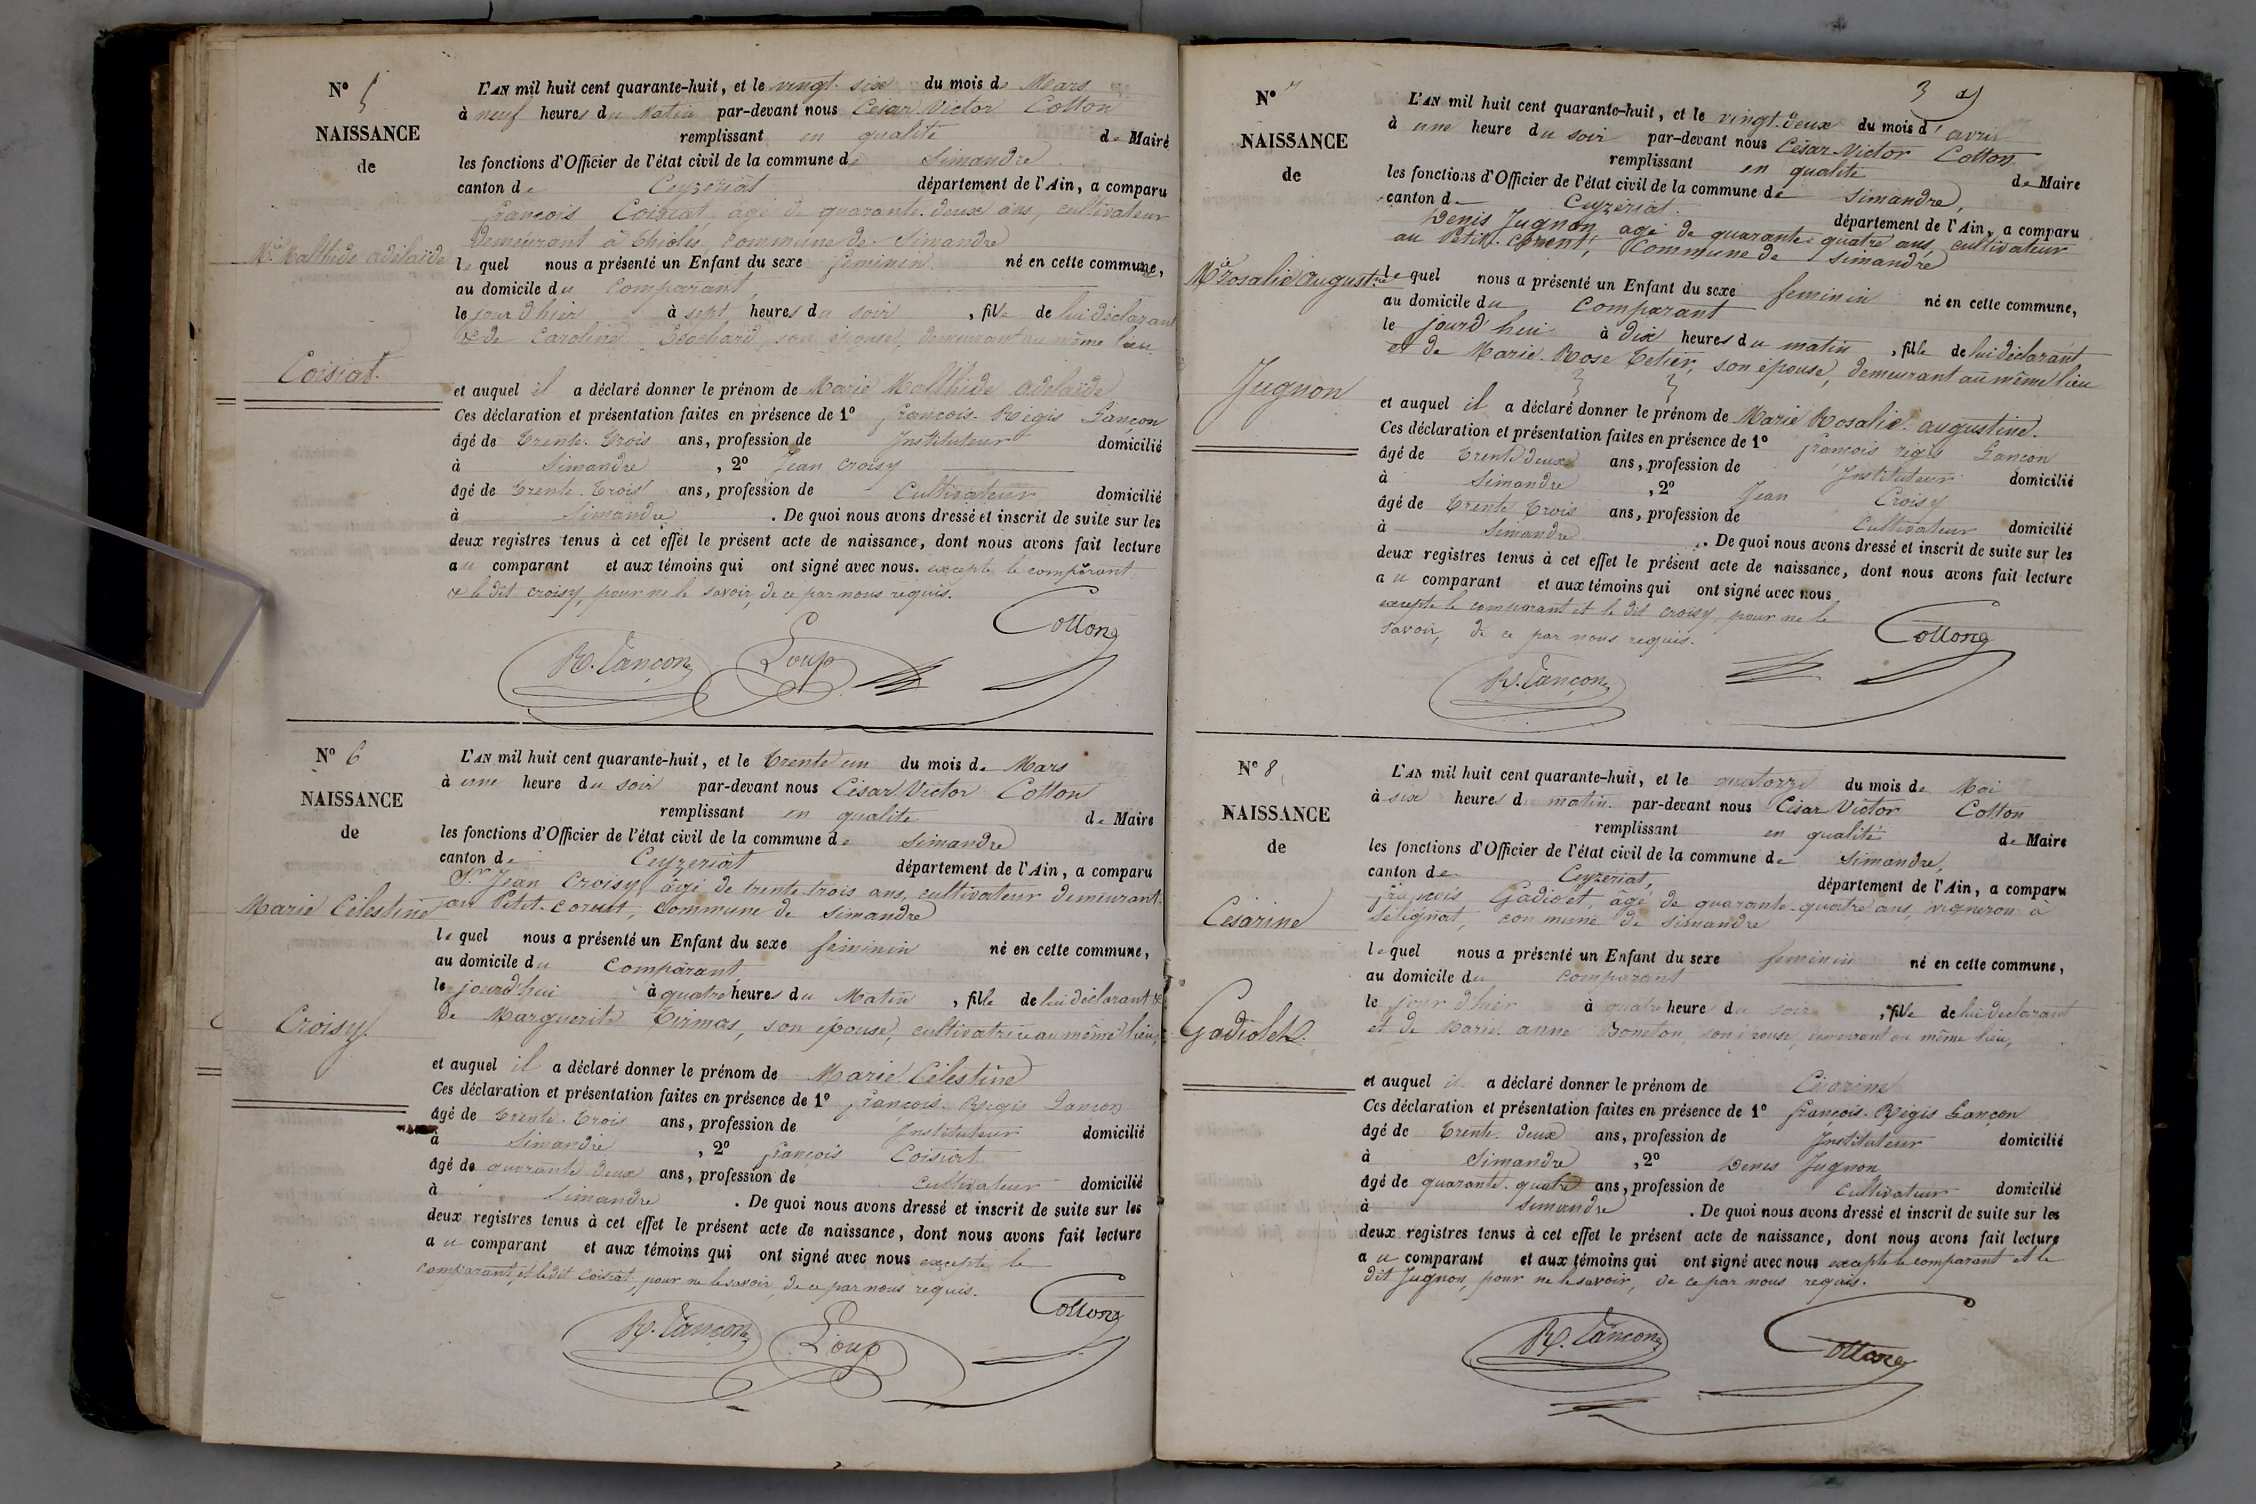 N° 5
NAISSANCE
de
Mie Malthide adélaïde
Coisiat.
L'AN mil huit cent quarante-huit, et le vingt-six du mois de Mars
à neuf heures du Matin par-devant nous César Victor Cotton
remplissant en qualité de Maire
les fonctions d'Officier de l'état civil de la commune de Simandre
canton de Ceyzeriat département de l'Ain, a comparu
françois Coisiat, agé de quarante-deux ans, cultivateur
demeurant à Thiolés commune de Simandre
lequel nous a présenté un Enfant du sexe feminin né en cette commune,
au domicile du comparant,
le jour d'hier à sept heures du soir, fille de lui déclarant
& de Caroline son épouse, demeurant au même lieu
et auquel il a déclaré donner le prénom de Marie Malthide adelaïde
Ces déclaration et présentation faites en présence de 1° françois-Régis Lançon
âgé de trente-trois ans, profession de Instituteur domicilié
à Simandre, 2° Jean Croisy
âgé de trente-trois ans, profession de Cultivateur domicilié
à Simandre. De quoi nous avons dressé et inscrit de suite sur les
deux registres tenus à cet effet le présent acte de naissance, dont nous avons fait lecture
au comparant et aux témoins qui ont signé avec nous. excepté le comparant
& le dit croisy, pour ne le savoir, de ce par nous requis.
Cotton
R. Lançon Loup
N° 6
NAISSANCE
de
Marie Célestine
Croisy.
L'AN mil huit cent quarante-huit, et le trente un du mois de Mars
à une heure du soir par-devant nous César Victor Cotton
remplissant en qualité de Maire
les fonctions d'Officier de l'état civil de la commune de Simandre
canton de Ceyzeriat département de l'Ain, a comparu
Sr Jean Croisy, agé de trente-trois ans, cultivateur demeurant
au Petit-Corent, Commune de Simandre
lequel nous a présenté un Enfant du sexe féminin né en cette commune,
au domicile du comparant
le jourd'hui à quatre heures du Matin, fille de lui déclarant &
de Marguerite Tirmas, son épouse, cultivatrice au même lieu,
et auquel il a déclaré donner le prénom de Marie Célestine
Ces déclaration et présentation faites en présence de 1° françois-Régis Lançon
âgé de trente-trois ans, profession de Instituteur domicilié
à Simandre, 2° françois Coisiat
âgé de quarante-deux ans, profession de cultivateur domicilié
à Simandre. De quoi nous avons dressé et inscrit de suite sur les
deux registres tenus à cet effet le présent acte de naissance, dont nous avons fait lecture
au comparant et aux témoins qui ont signé avec nous excepté le
comparant, et le dit Coisiat, pour ne le savoir, de ce par nous requis.
Cotton
R. Lançon Loup
3
N° 7
NAISSANCE
de
Mie Rosalie augustine
Jugnon
L'AN mil huit cent quarante-huit, et le vingt-deux du mois d'avril
à une heure du soir par-devant nous César-Victor Cotton
remplissant en qualité de Maire
les fonctions d'Officier de l'état civil de la commune de Simandre,
canton de Ceyzeriat département de l'Ain, a comparu
Denis Jugnon, agé de quarante-quatre ans, cultivateur
au Petit-Corent, Commune de Simandre
lequel nous a présenté un Enfant du sexe feminin né en cette commune,
au domicile du comparant
le jourd'hui à dix heures du matin, fille de lui déclarant
et de Marie-Rose Tetier, son épouse, demeurant au même lieu
et auquel il a déclaré donner le prénom de Marie Rosalie augustine.
Ces déclaration et présentation faites en présence de 1° françois régis Lançon
âgé de trente deux ans, profession de Instituteur domicilié
à Simandre, 2° Jean Croisy
âgé de trente trois ans, profession de Cultivateur domicilié
à Simandre. De quoi nous avons dressé et inscrit de suite sur les
deux registres tenus à cet effet le présent acte de naissance, dont nous avons fait lecture
au comparant et aux témoins qui ont signé avec nous
excepté le comparant et le dit croisy, pour ne le
savoir, de ce par nous requis.
Cotton
R. Lançon
N° 8
NAISSANCE
de
Césarine
Gadiolet.
L'AN mil huit cent quarante-huit, et le quatorze du mois de Mai
à six heures du matin par-devant nous César Victor Cotton
remplissant en qualité de Maire
les fonctions d'Officier de l'état civil de la commune de Simandre,
canton de Ceyzeriat, département de l'Ain, a comparu
françois Gadiolet, âgé de quarante-quatre ans, vigneron à
Sélignat, commune de Simandre
lequel nous a présenté un Enfant du sexe feminin né en cette commune,
au domicile du comparant
le jour d'hier à quatre heure du soir, fille de lui déclarant
et de Marie anne Boneton, son épouse, demeurant au même lieu,
et auquel il a déclaré donner le prénom de Césarine
Ces déclaration et présentation faites en présence de 1° françois-Régis Lançon
âgé de trente-deux ans, profession de Instituteur domicilié
à Simandre, 2° Denis Jugnon
âgé de quarante-quatre ans, profession de cultivateur domicilié
à Simandre. De quoi nous avons dressé et inscrit de suite sur les
deux registres tenus à cet effet le présent acte de naissance, dont nous avons fait lecture
au comparant et aux témoins qui ont signé avec nous excepté le comparant et le
dit Jugnon, pour ne le savoir, de ce par nous requis.
R. Lançon Cotton